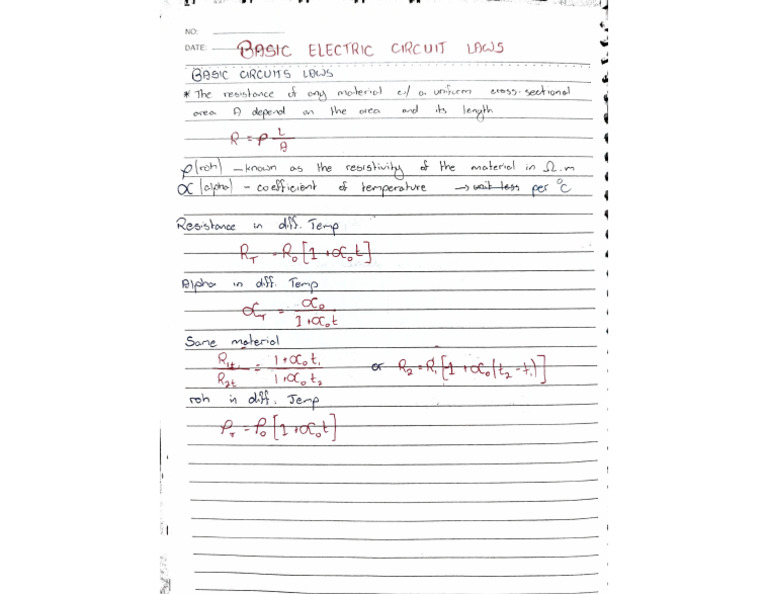 NO:
DATE: BASIC ELECTRIC CIRCUIT LAWS
BASIC CIRCUITS LAWS
* The resistance of any material c/ a uniform cross-sectional
area A depend on the area and its length
R = ρ L/A
ρ (roh) – known as the resistivity of the material in Ω.m
∝ (alpha) – coefficient of temperature → unit less per °C
Resistance in diff. Temp
R_T = R_0 [1 + ∝_0 t]
Alpha in diff. Temp
∝_T = ∝_0 / 1 + ∝_0 t
Same material
R_1t / R_2t = 1 + ∝_0 t_1 / 1 + ∝_0 t_2 or R_2 = R_1 [1 + ∝_0 (t_2 - t_1)]
roh in diff. Temp
ρ_T = ρ_0 [1 + ∝_0 t]